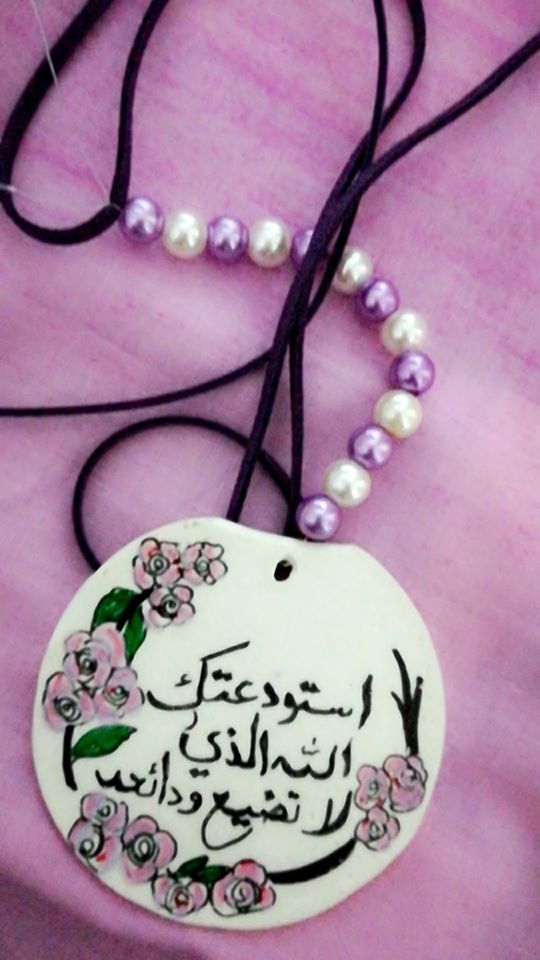 استودعتك
الله الذي
لا تضيع ودائعه